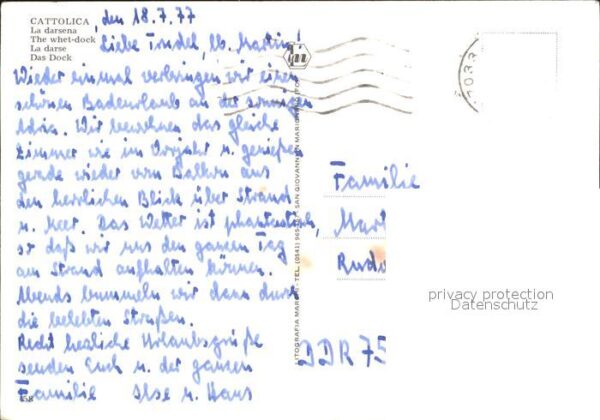 CATTOLICA
La darsena
The whet-dock
La darse
Das Dock
, den 18.7.77
Liebe Trudel, lb. Martin!
Wieder einmal verbringen wir einen
schönen Badeurlaub an der sonnigen
Adria. Wir bewohnen das gleiche
Zimmer wie im Vorjahr u. genießen
gerade wieder vom Balkon aus
den herrlichen Blick über Strand
u. Meer. Das Wetter ist phantastisch,
so daß wir uns den ganzen Tag
am Strand aufhalten können.
Abends bummeln wir dann durch
die belebten Straßen.
Recht herzliche Urlaubsgrüße
senden Euch u. der ganzen
Familie Ilse u. Hans
58
LITOGRAFIA MARIANI - TEL. (0541) SAN GIOVANNI IN MARIGNANO (FO)
Familie
Mart
Rudo
DDR 75
privacy protection
Datenschutz